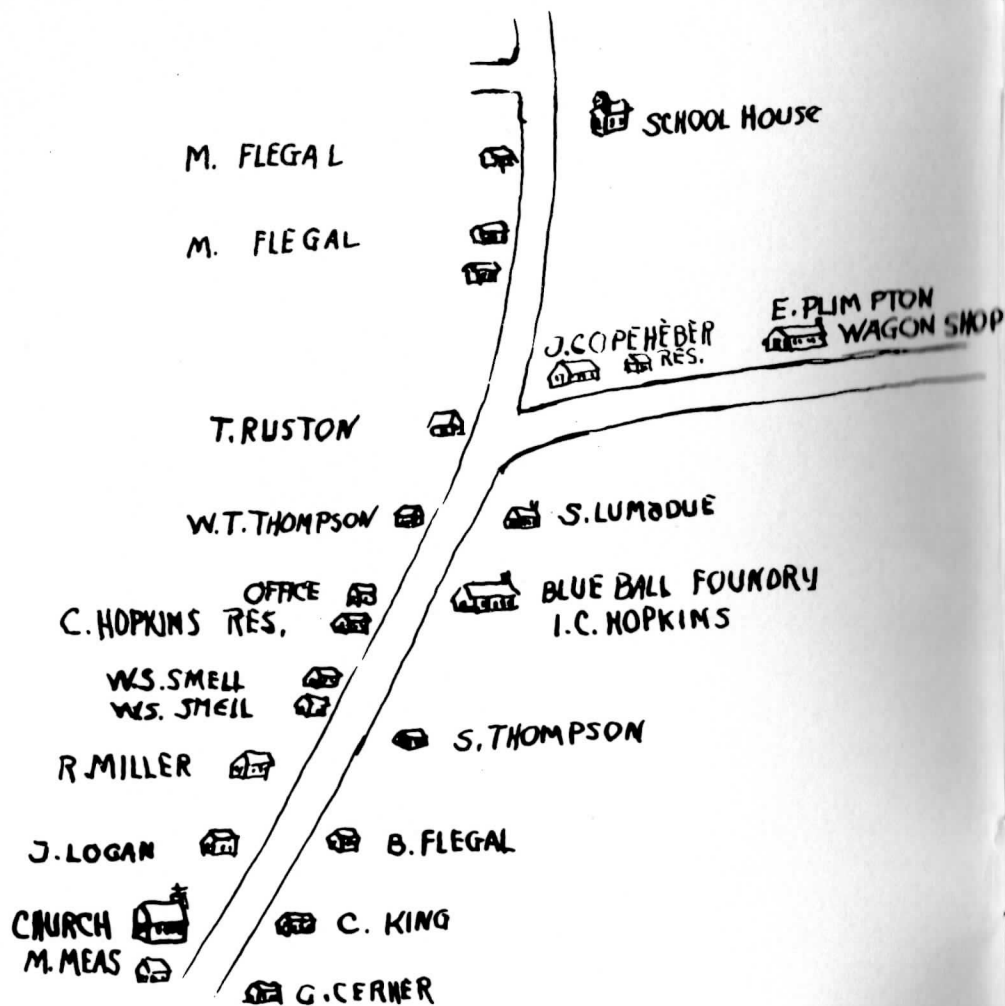 SCHOOL HOUSE
M. FLEGAL
M. FLEGAL
E. PLIMPTON
WAGON SHOP
J. COPEHÈBER
RES.
T. RUSTON
W. T. THOMPSON
S. LUMADUE
OFFICE
C. HOPKINS RES.
BLUE BALL FOUNDRY
I. C. HOPKINS
W.S. SMELL
W.S. SMELL
S. THOMPSON
R. MILLER
J. LOGAN
B. FLEGAL
CHURCH
C. KING
M. MEAS
G. CERNER